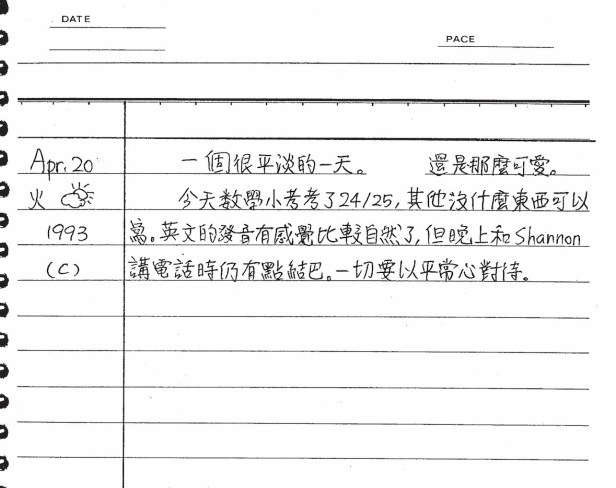 DATE
PACE
Apr. 20 一個很平淡的一天。 還是那麼可愛。
火 今天数學小考考了24/25,其他沒什麼東西可以
1993 寫。英文的發音有感覺比較自然了,但晚上和Shannon
(C) 講電話時仍有點結巴。一切要以平常心對待。